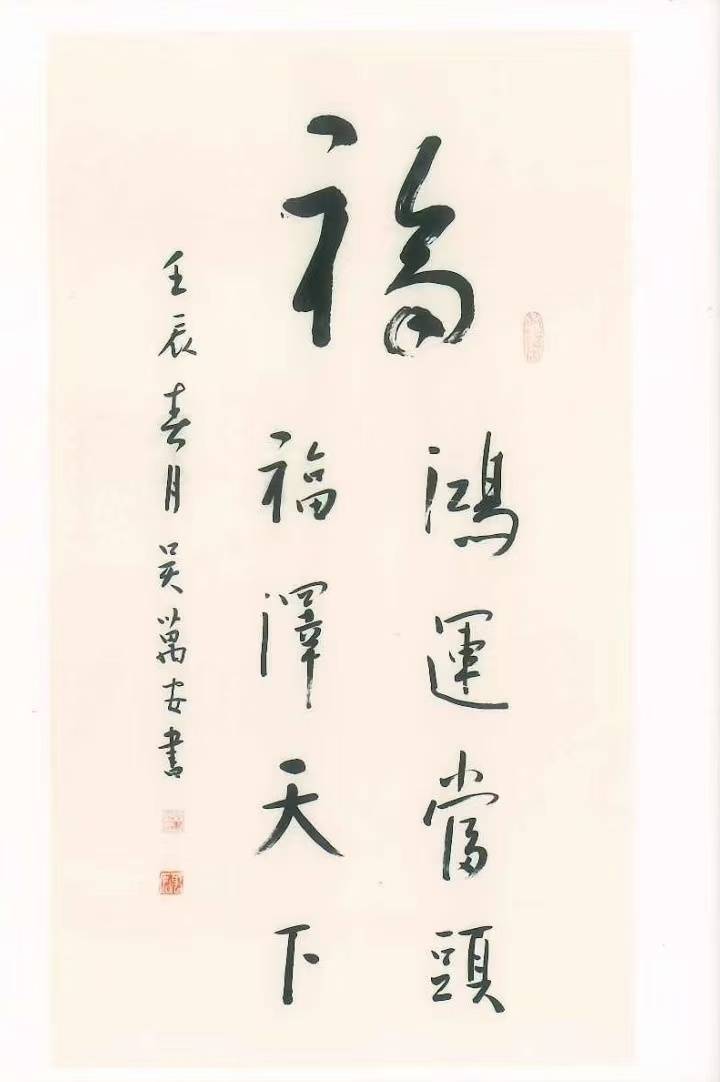 福
鴻運當頭
福澤天下
壬辰春月吴萬安書